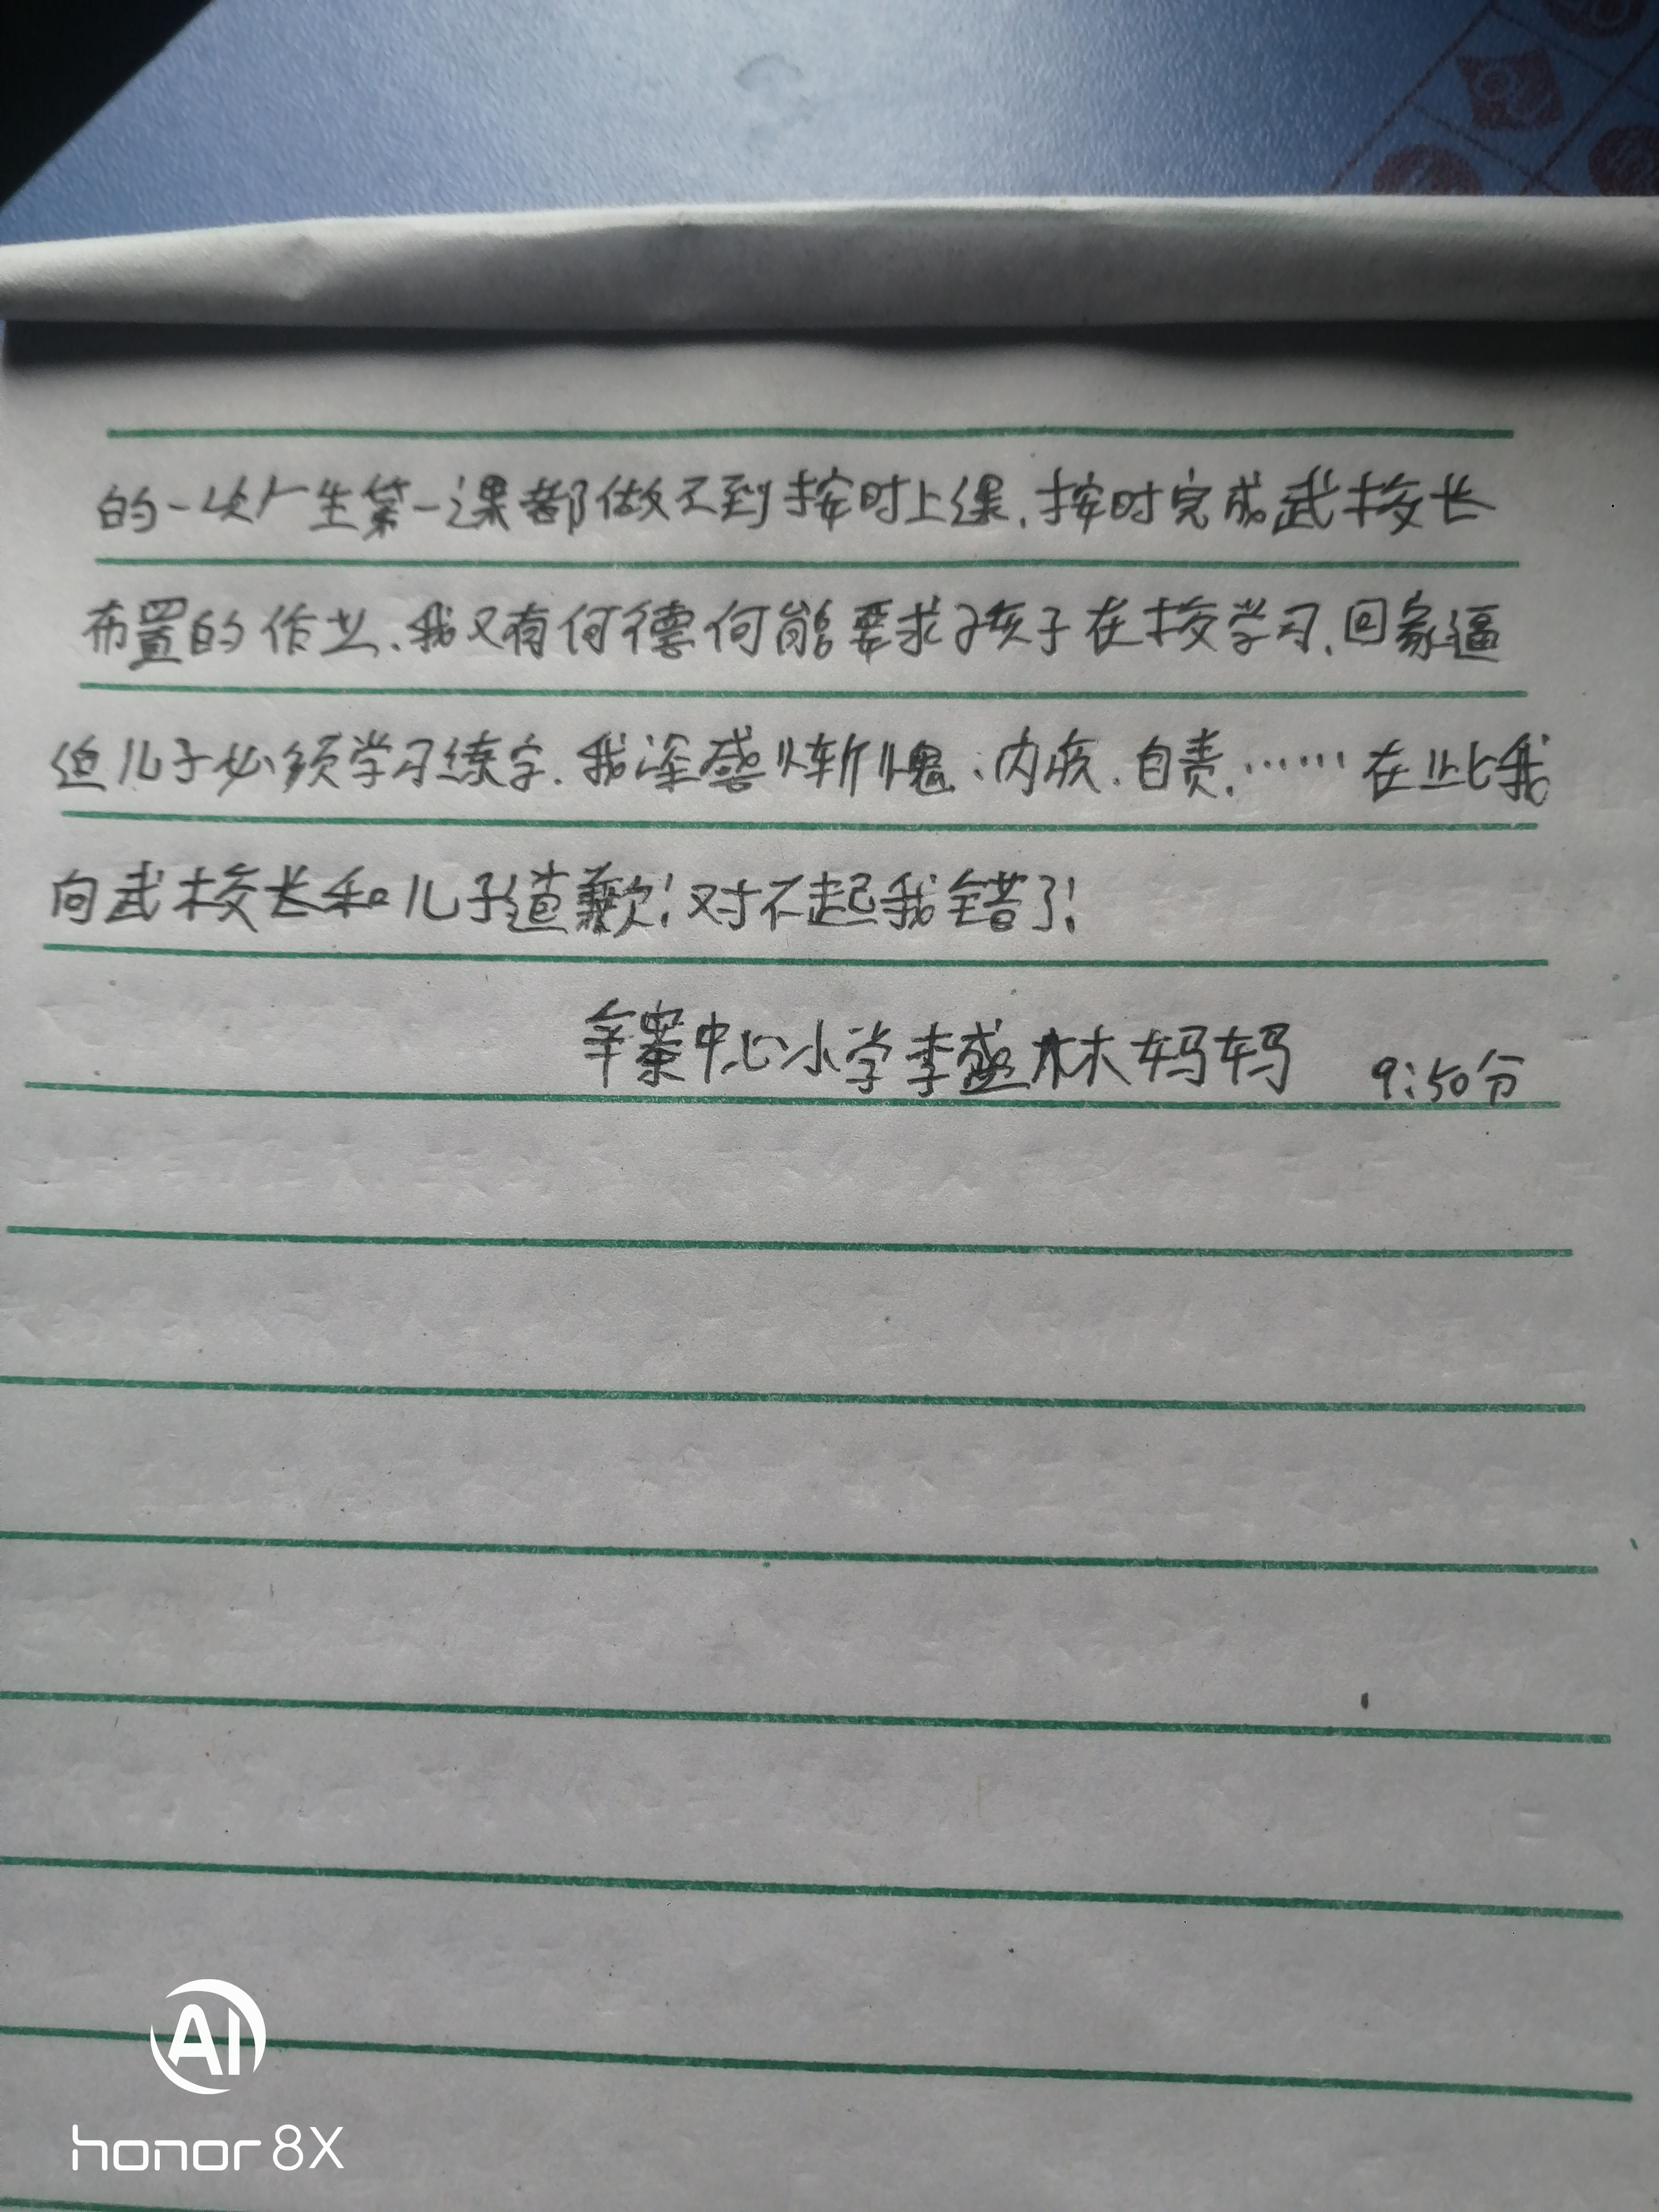 的一次广生第一课都做不到按时上课.按时完成武校长
布置的作业.我又有何德何能要求孩子在校学习.回家逼
迫儿子必须学习练字.我深感惭愧、内疚.自责.……在此我
向武校长和儿子道歉!对不起我错了!
辛寨中心小学李盛林妈妈 9:50分
AI
honor 8X